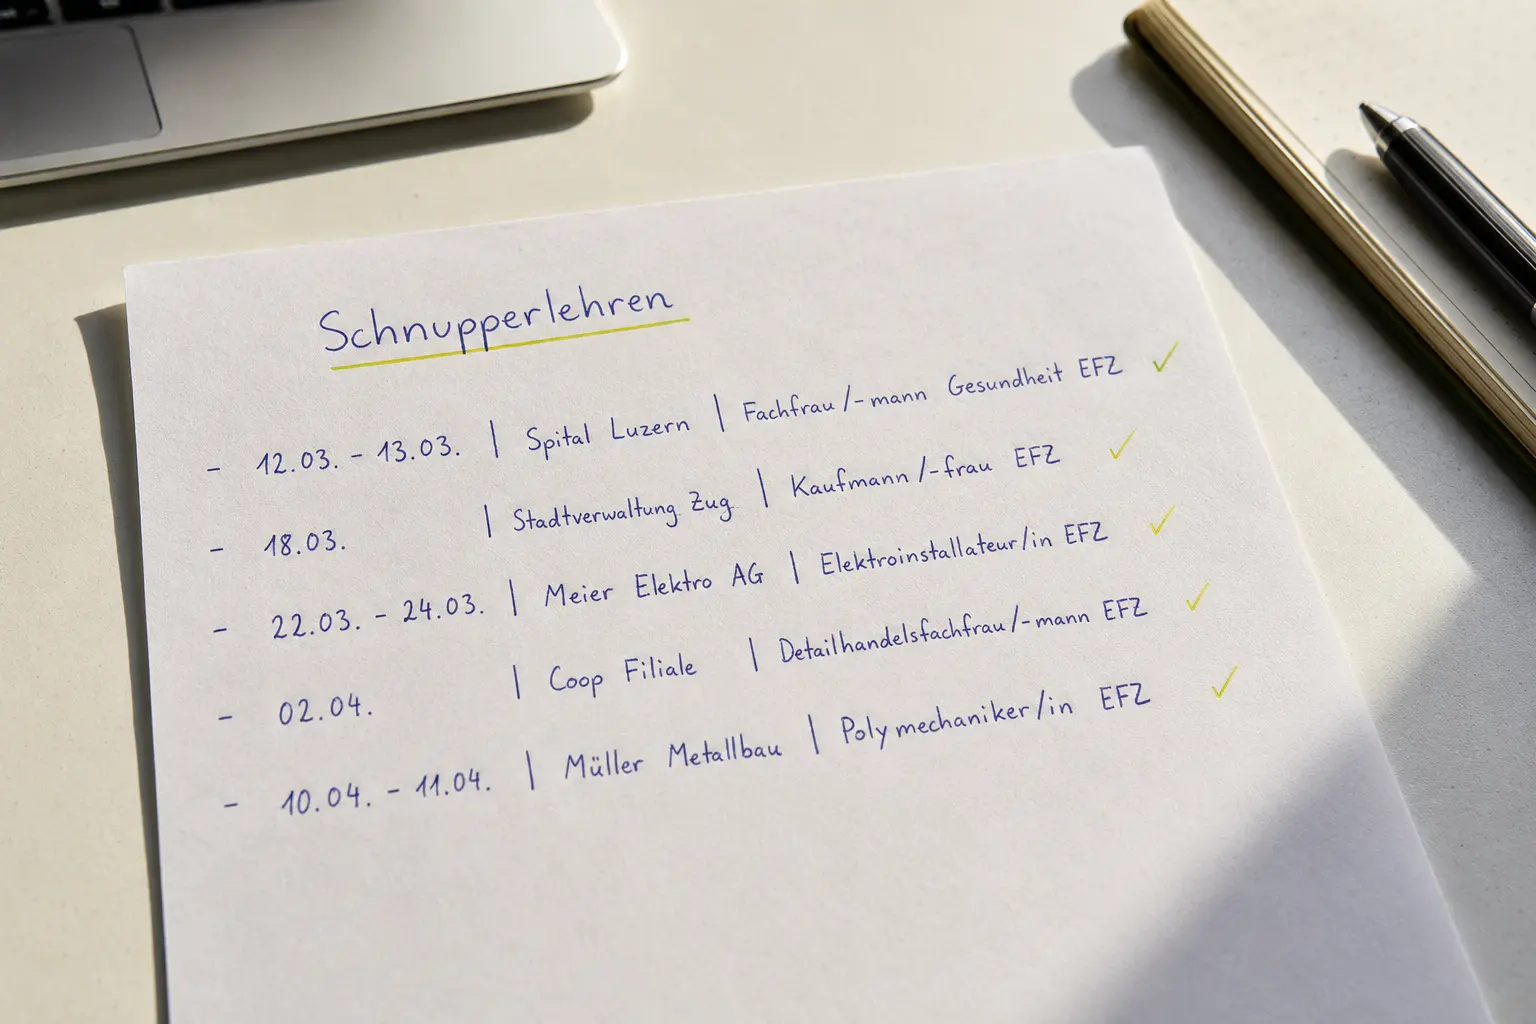 Schnupperlehren
- 12.03. - 13.03. | Spital Luzern | Fachfrau/-mann Gesundheit EFZ ✓
- 18.03. | Stadtverwaltung Zug | Kaufmann/-frau EFZ ✓
- 22.03. - 24.03. | Meier Elektro AG | Elektroinstallateur/in EFZ ✓
- 02.04. | Coop Filiale | Detailhandelsfachfrau/-mann EFZ ✓
- 10.04. - 11.04. | Müller Metallbau | Polymechaniker/in EFZ ✓